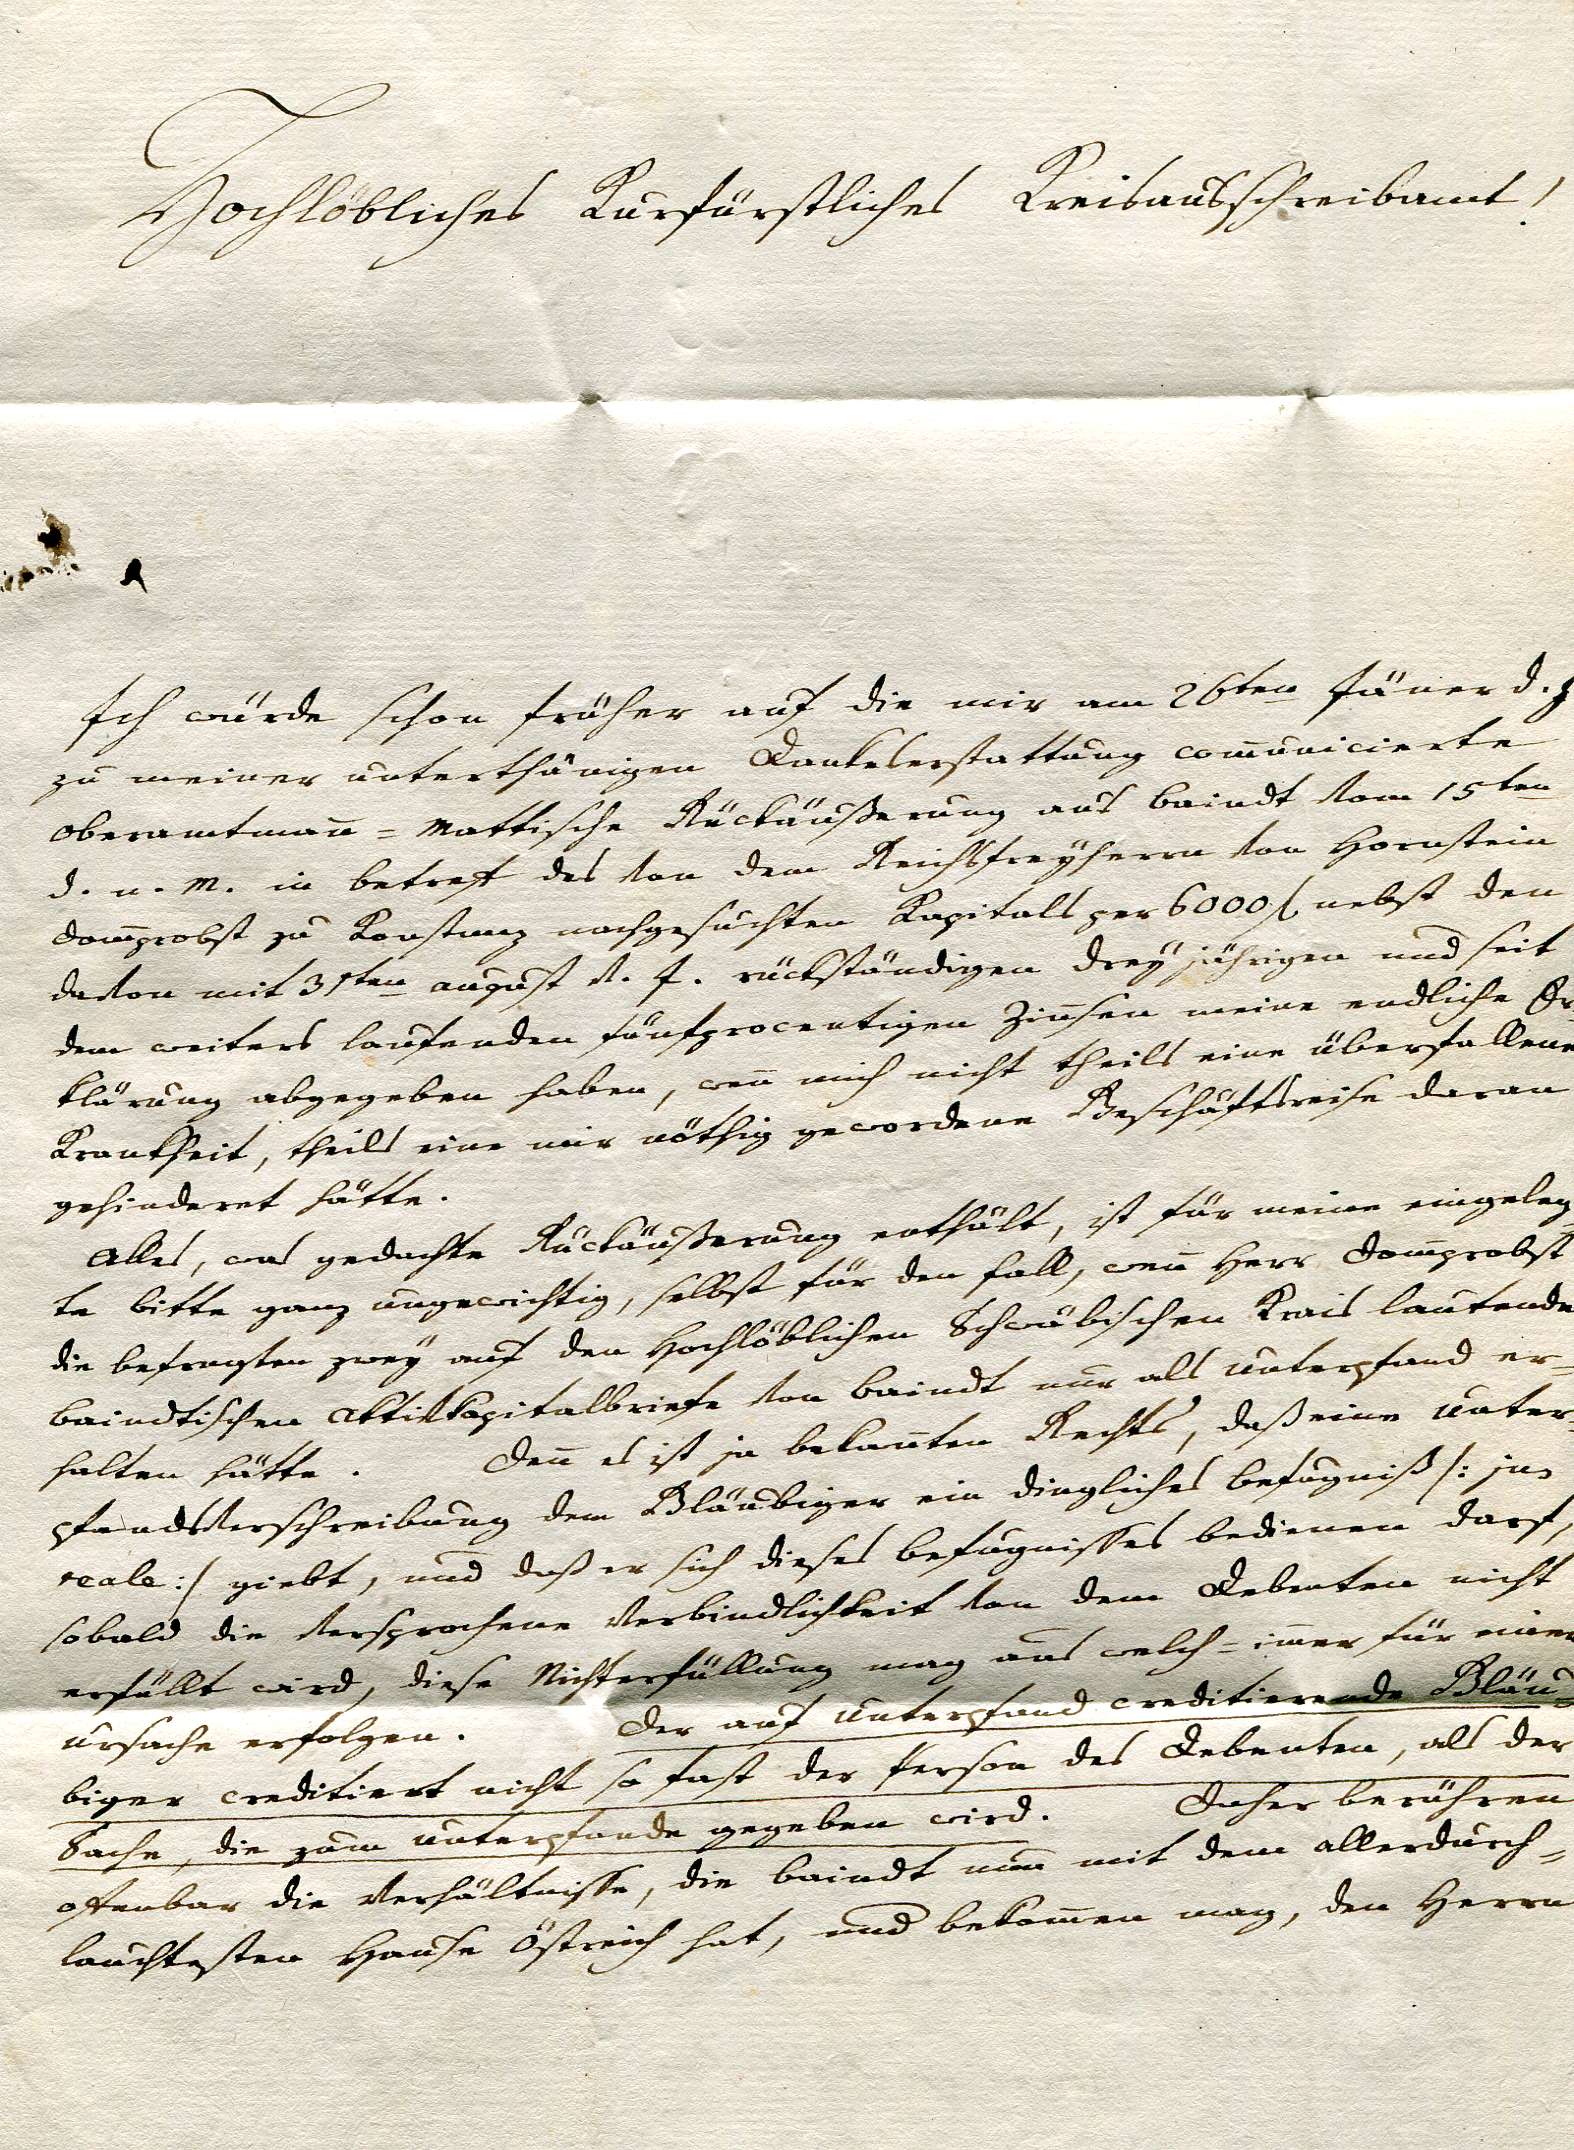 Hochlöbliches Kurfürstliches Kreisausschreibamt!
Ich würde schon früher auf die mir am 26ten Jäner d. J
zu meiner unterthänigen Dankeserstattung com̄unicierte
Oberamtman̄=Mattische Rückäußerung aus Baindt vom 15ten
d. n. M. in betreff des von dem Reichsfreyherrn von Hornstein
Dom̄probst zu Konstanz nachgesuchten Kapitals per 6000 f. nebst den
davon mit 31ten August v. J. rückständigen dreyjährigen und seit
dem weiters laufenden fünfprocentigen Zinsen meine endliche Er
klärung abgegeben haben, wen̄ mich nicht theils eine überfallene
Krankheit, theils eine mir nöthig gewordene Geschäftsreise daran
gehinderet hätte.
Alles, was gedachte Rückäußerung enthält, ist für meine eingeleg
te bitte ganz ungewichtig, selbst für den fall, wen̄ Herr Dom̄probst
die befragten zwey auf den Hochlöblichen Schwäbischen Krais lautende
baindtischen Aktivkapitalbriefe von Baindt nur als Unterpfand er=
halten hätte. Den̄ es ist ja bekan̄ten Rechts, daß eine Unter=
pfandsverschreibung dem Gläubiger ein dingliches befugniß /: jus
reale :/ giebt, und daß er sich dieses befugnisses bedienen darf,
sobald die versprochene Verbindlichkeit von dem Debenten nicht
erfüllt wird, diese Nichterfüllung mag aus welch=im̄er für einer
Ursache erfolgen. Der auf Unterpfand creditierende Gläu=
biger creditiert nicht so fast der Person des Debenten, als der
Sache, die zum Unterpfande gegeben wird. Daher berühren
offenbar die Verhältnisse, die Baindt nun mit dem allerdurch=
lauchtesten Hause Östreich hat, und bekom̄en mag, den Herrn